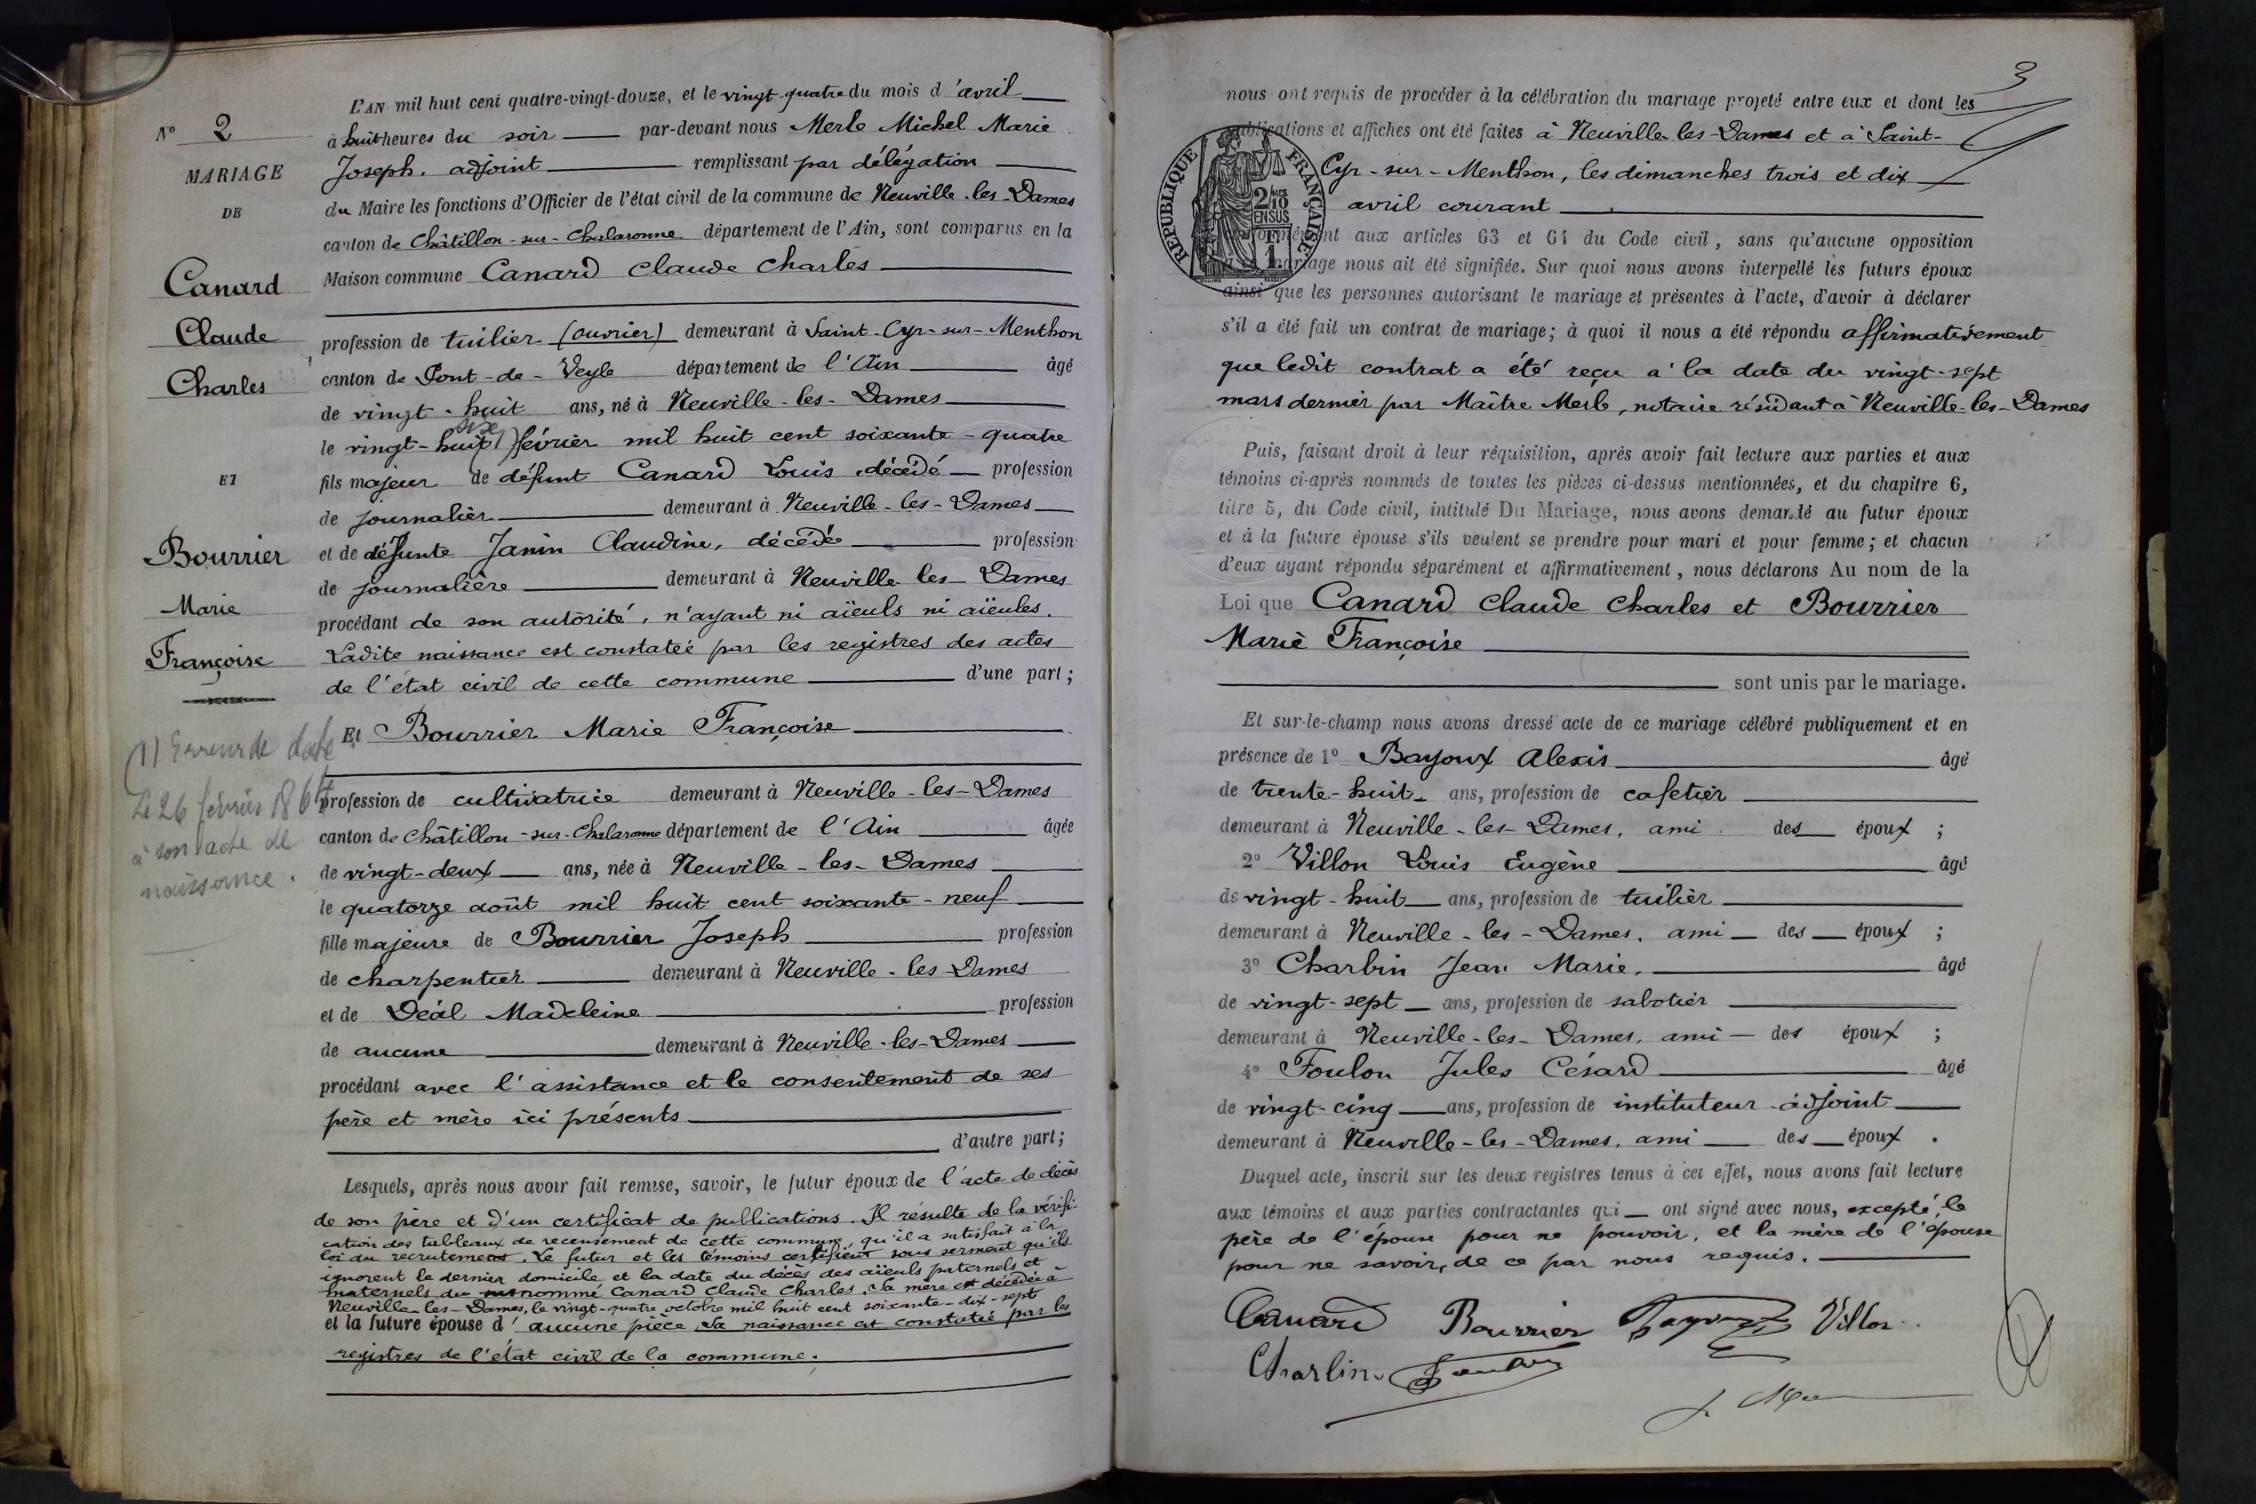 N° 2
MARIAGE
DE
Canard
Claude
Charles
ET
Bourrier
Marie
Françoise
(1) Erreur de date
Le 26 février 1864
à son acte de
naissance.
L'AN mil huit cent quatre-vingt-douze, et le vingt-quatre du mois d'avril
à huit heures du soir par-devant nous Merle Michel Marie
Joseph, adjoint remplissant par délégation
du Maire les fonctions d'Officier de l'état civil de la commune de Neuville-les-Dames
canton de Châtillon-sur-Chalaronne département de l'Ain, sont comparus en la
Maison commune Canard Claude Charles
profession de tuilier (ouvrier) demeurant à Saint-Cyr-sur-Menthon
canton de Pont-de-Veyle département de l'Ain âgé
de vingt-huit ans, né à Neuville-les-Dames
six
le vingt-huit (1) février mil huit cent soixante-quatre
fils majeur de défunt Canard Louis, décédé profession
de journalier demeurant à Neuville-les-Dames
et de défunte Janin Claudine, décédée profession
de journalière demeurant à Neuville-les-Dames
procédant de son autorité, n'ayant ni aïeuls ni aïeules.
Ladite naissance est constatée par les registres des actes
de l'état civil de cette commune d'une part;
Et Bourrier Marie Françoise
profession de cultivatrice demeurant à Neuville-les-Dames
canton de Châtillon-sur-Chalaronne département de l'Ain âgée
de vingt-deux ans, née à Neuville-les-Dames
le quatorze août mil huit cent soixante-neuf
fille majeure de Bourrier Joseph profession
de charpentier demeurant à Neuville-les-Dames
et de Déal Madeleine profession
de aucune demeurant à Neuville-les-Dames
procédant avec l'assistance et le consentement de ses
père et mère ici présents
d'autre part;
Lesquels, après nous avoir fait remise, savoir, le futur époux de l'acte de décès
de son père et d'un certificat de publications. Il résulte de la vérifi-
cation des tableaux de recensement de cette commune, qu'il a satisfait à la
loi du recrutement. Le futur et les témoins certifient sous serment qu'ils
ignorent le dernier domicile et la date du décès des aïeuls paternels et
maternels du nommé Canard Claude Charles. Sa mère est décédée à
Neuville-les-Dames, le vingt-quatre octobre mil huit cent soixante-dix-sept
et la future épouse d'aucune pièce. Sa naissance est constatée par les
registres de l'état civil de la commune.
3
nous ont requis de procéder à la célébration du mariage projeté entre eux et dont les
publications et affiches ont été faites à Neuville-les-Dames et à Saint-
Cyr-sur-Menthon, les dimanches trois et dix
avril courant
conformément aux articles 63 et 64 du Code civil, sans qu'aucune opposition
mariage nous ait été signifiée. Sur quoi nous avons interpellé les futurs époux
ainsi que les personnes autorisant le mariage et présentes à l'acte, d'avoir à déclarer
s'il a été fait un contrat de mariage; à quoi il nous a été répondu affirmativement
que ledit contrat a été reçu à la date du vingt-sept
mars dernier par Maître Merle, notaire résidant à Neuville-les-Dames
RÉPUBLIQUE FRANÇAISE
2/10
EN SUS
1
Puis, faisant droit à leur réquisition, après avoir fait lecture aux parties et aux
témoins ci-après nommés de toutes les pièces ci-dessus mentionnées, et du chapitre 6,
titre 5, du Code civil, intitulé Du Mariage, nous avons demandé au futur époux
et à la future épouse s'ils veulent se prendre pour mari et pour femme; et chacun
d'eux ayant répondu séparément et affirmativement, nous déclarons Au nom de la
Loi que Canard Claude Charles et Bourrier
Marie Françoise
sont unis par le mariage.
Et sur-le-champ nous avons dressé acte de ce mariage célébré publiquement et en
présence de 1° Bayoux Alexis âgé
de trente-huit ans, profession de cafetier
demeurant à Neuville-les-Dames, ami des époux;
2° Villon Louis Eugène âgé
de vingt-huit ans, profession de tuilier
demeurant à Neuville-les-Dames, ami des époux;
3° Charbin Jean Marie, âgé
de vingt-sept ans, profession de sabotier
demeurant à Neuville-les-Dames, ami des époux;
4° Foulon Jules Césard âgé
de vingt-cinq ans, profession de instituteur-adjoint
demeurant à Neuville-les-Dames, ami des époux.
Duquel acte, inscrit sur les deux registres tenus à cet effet, nous avons fait lecture
aux témoins et aux parties contractantes qui ont signé avec nous, excepté le
père de l'épouse pour ne pouvoir, et la mère de l'épouse
pour ne savoir, de ce par nous requis.
Canard Bourrier Bayoux Villon
Charbin Foulon